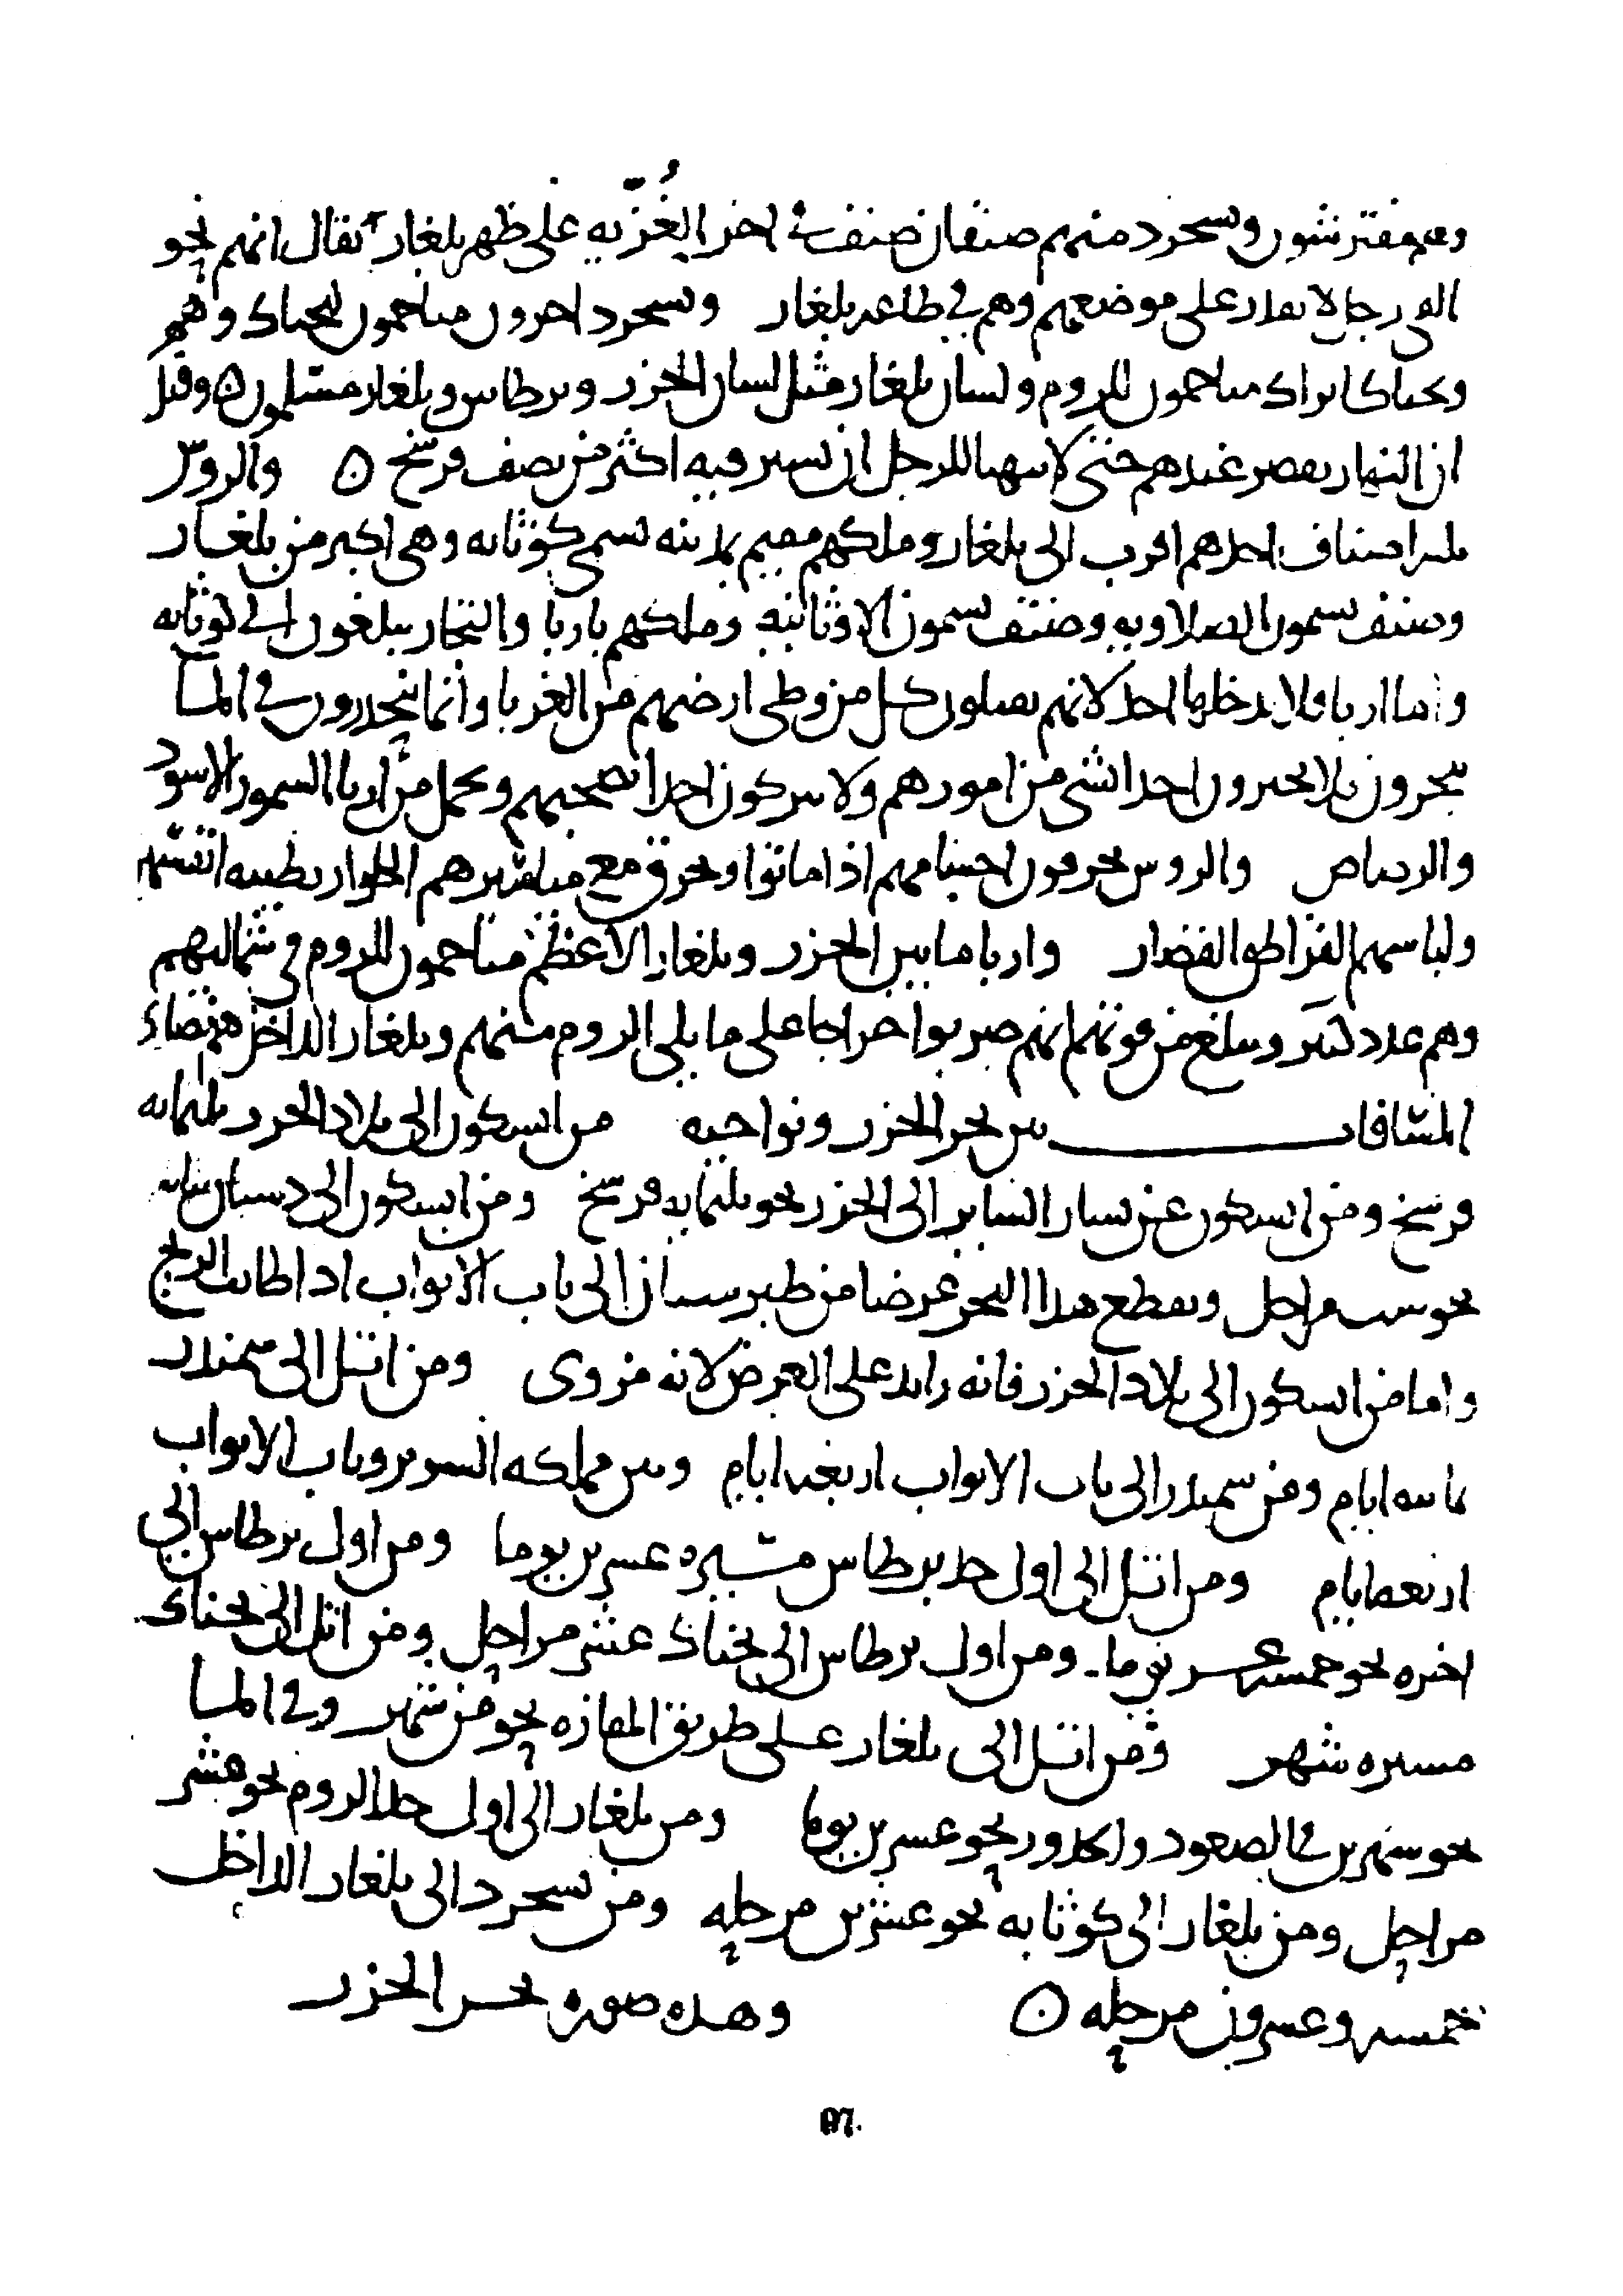 وهم مفترشون وبسجرد منهم صنفان صنف في اخر الغُزّيه على ظهر بلغار يقال انهم نحو
الفى رجل لا يقدر على موضعهم وهم في طاعه بلغار وبسجرد اخرون متاخمون لبجناك وهم
وبجناك اتراك متاخمون للروم ولسان بلغار مثل لسان الخزر وبرطاس وبلغار مسلمون ٥ وقيل
ان النهار يقصر عندهم حتى لا يتهيا للرجل ان يسير فيه اكثر من نصف فرسخ ٥ والروس
ثلثه اصناف احدهم اقرب الى بلغار وملكهم مقيم بمدينه تسمى كوثابه وهى اكبر من بلغار
وصنف يسمون الصلاويه وصنف يسمون الاوثانيه وملكهم باربا والتجار يبلغون الى كوثابه
واما اربا فلا يدخلها احد لانهم يقتلون كل من وطى ارضهم من الغربا وانما ينحدرون في الما
يتجرون فلا يخبرون احدا بشى من امورهم ولا يتركون احدا يصحبهم ويحمل من اربا السمور الاسود
والرصاص والروس يحرقون اجسامهم اذا ماتوا ويحرق مع مياسيرهم الجوار بطيبه انفسهم
ولباسهم القراطق القصار واربا ما بين الخزر وبلغار الاعظم متاخمون للروم في شماليهم
وهم عدد كثير ويبلغ من قوتهم انهم ضربوا خراجا على ما يلى الروم منهم وبلغار الداخل هم نصارى
المسافات بين بحر الخزر ونواحيه من ابسكون الى بلاد الخزر ثلثمايه
فرسخ ومن ابسكون عن يسار الساير الى الخزر نحو ثلثمايه فرسخ ومن ابسكون الى دهستان
نحو ست مراحل ويقطع هذا البحر عرضا من طبرستان الى باب الابواب اذا طابت الريح
واما من ابسكون الى بلاد الخزر فانه زايد على العرض لانه مزوى ومن اتل الى سمندر
ثمانيه ايام ومن سمندر الى باب الابواب اربعه ايام وبين مملكه السرير وباب الابواب
اربعه ايام ومن اتل الى اول حد برطاس مسيره عشرين يوما ومن اول برطاس الى
اخره نحو خمسه عشر يوما ومن اول برطاس الى بجناك عشر مراحل ومن اتل الى بجناك
مسيره شهر ومن اتل الى بلغار على طريق المفازه نحو من شهر وفي الما
نحو شهرين في الصعود والحدور نحو عشرين يوما ومن بلغار الى اول حد الروم نحو عشر
مراحل ومن بلغار الى كوثابه نحو عشرين مرحله ومن بسجرد الى بلغار الداخل
خمسه وعشرون مرحله ٥ وهذه صوره بحر الخزر